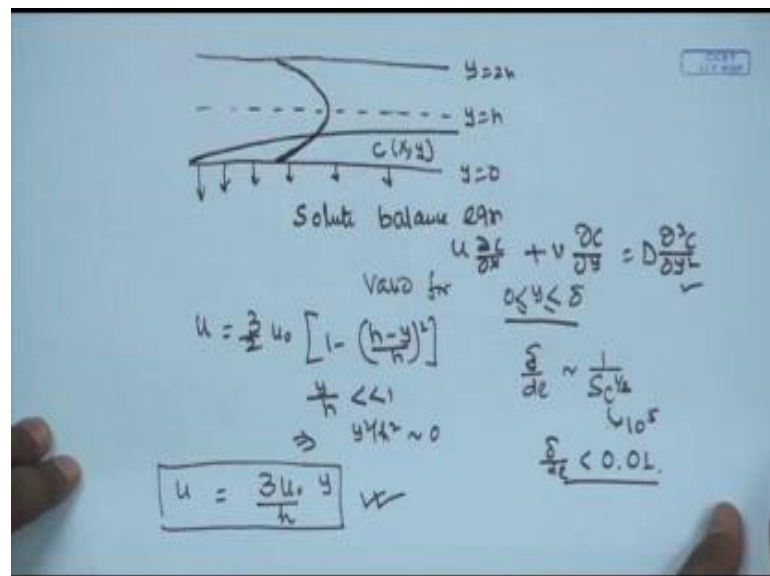 y=2h
y=h
C(x,y)
y=0
Solute balance eqn
u ∂c/∂x + v ∂c/∂y = D ∂²c/∂y²
Valid for 0≤y≤δ
u = 3/2 u₀ [1 - ((h-y)/h)²]
y/h <<1
⇒ y²/h² ~ 0
δ/de ~ 1/Sc^(1/3)
↳10⁵
δ/de < 0.01.
u = 3u₀/h y